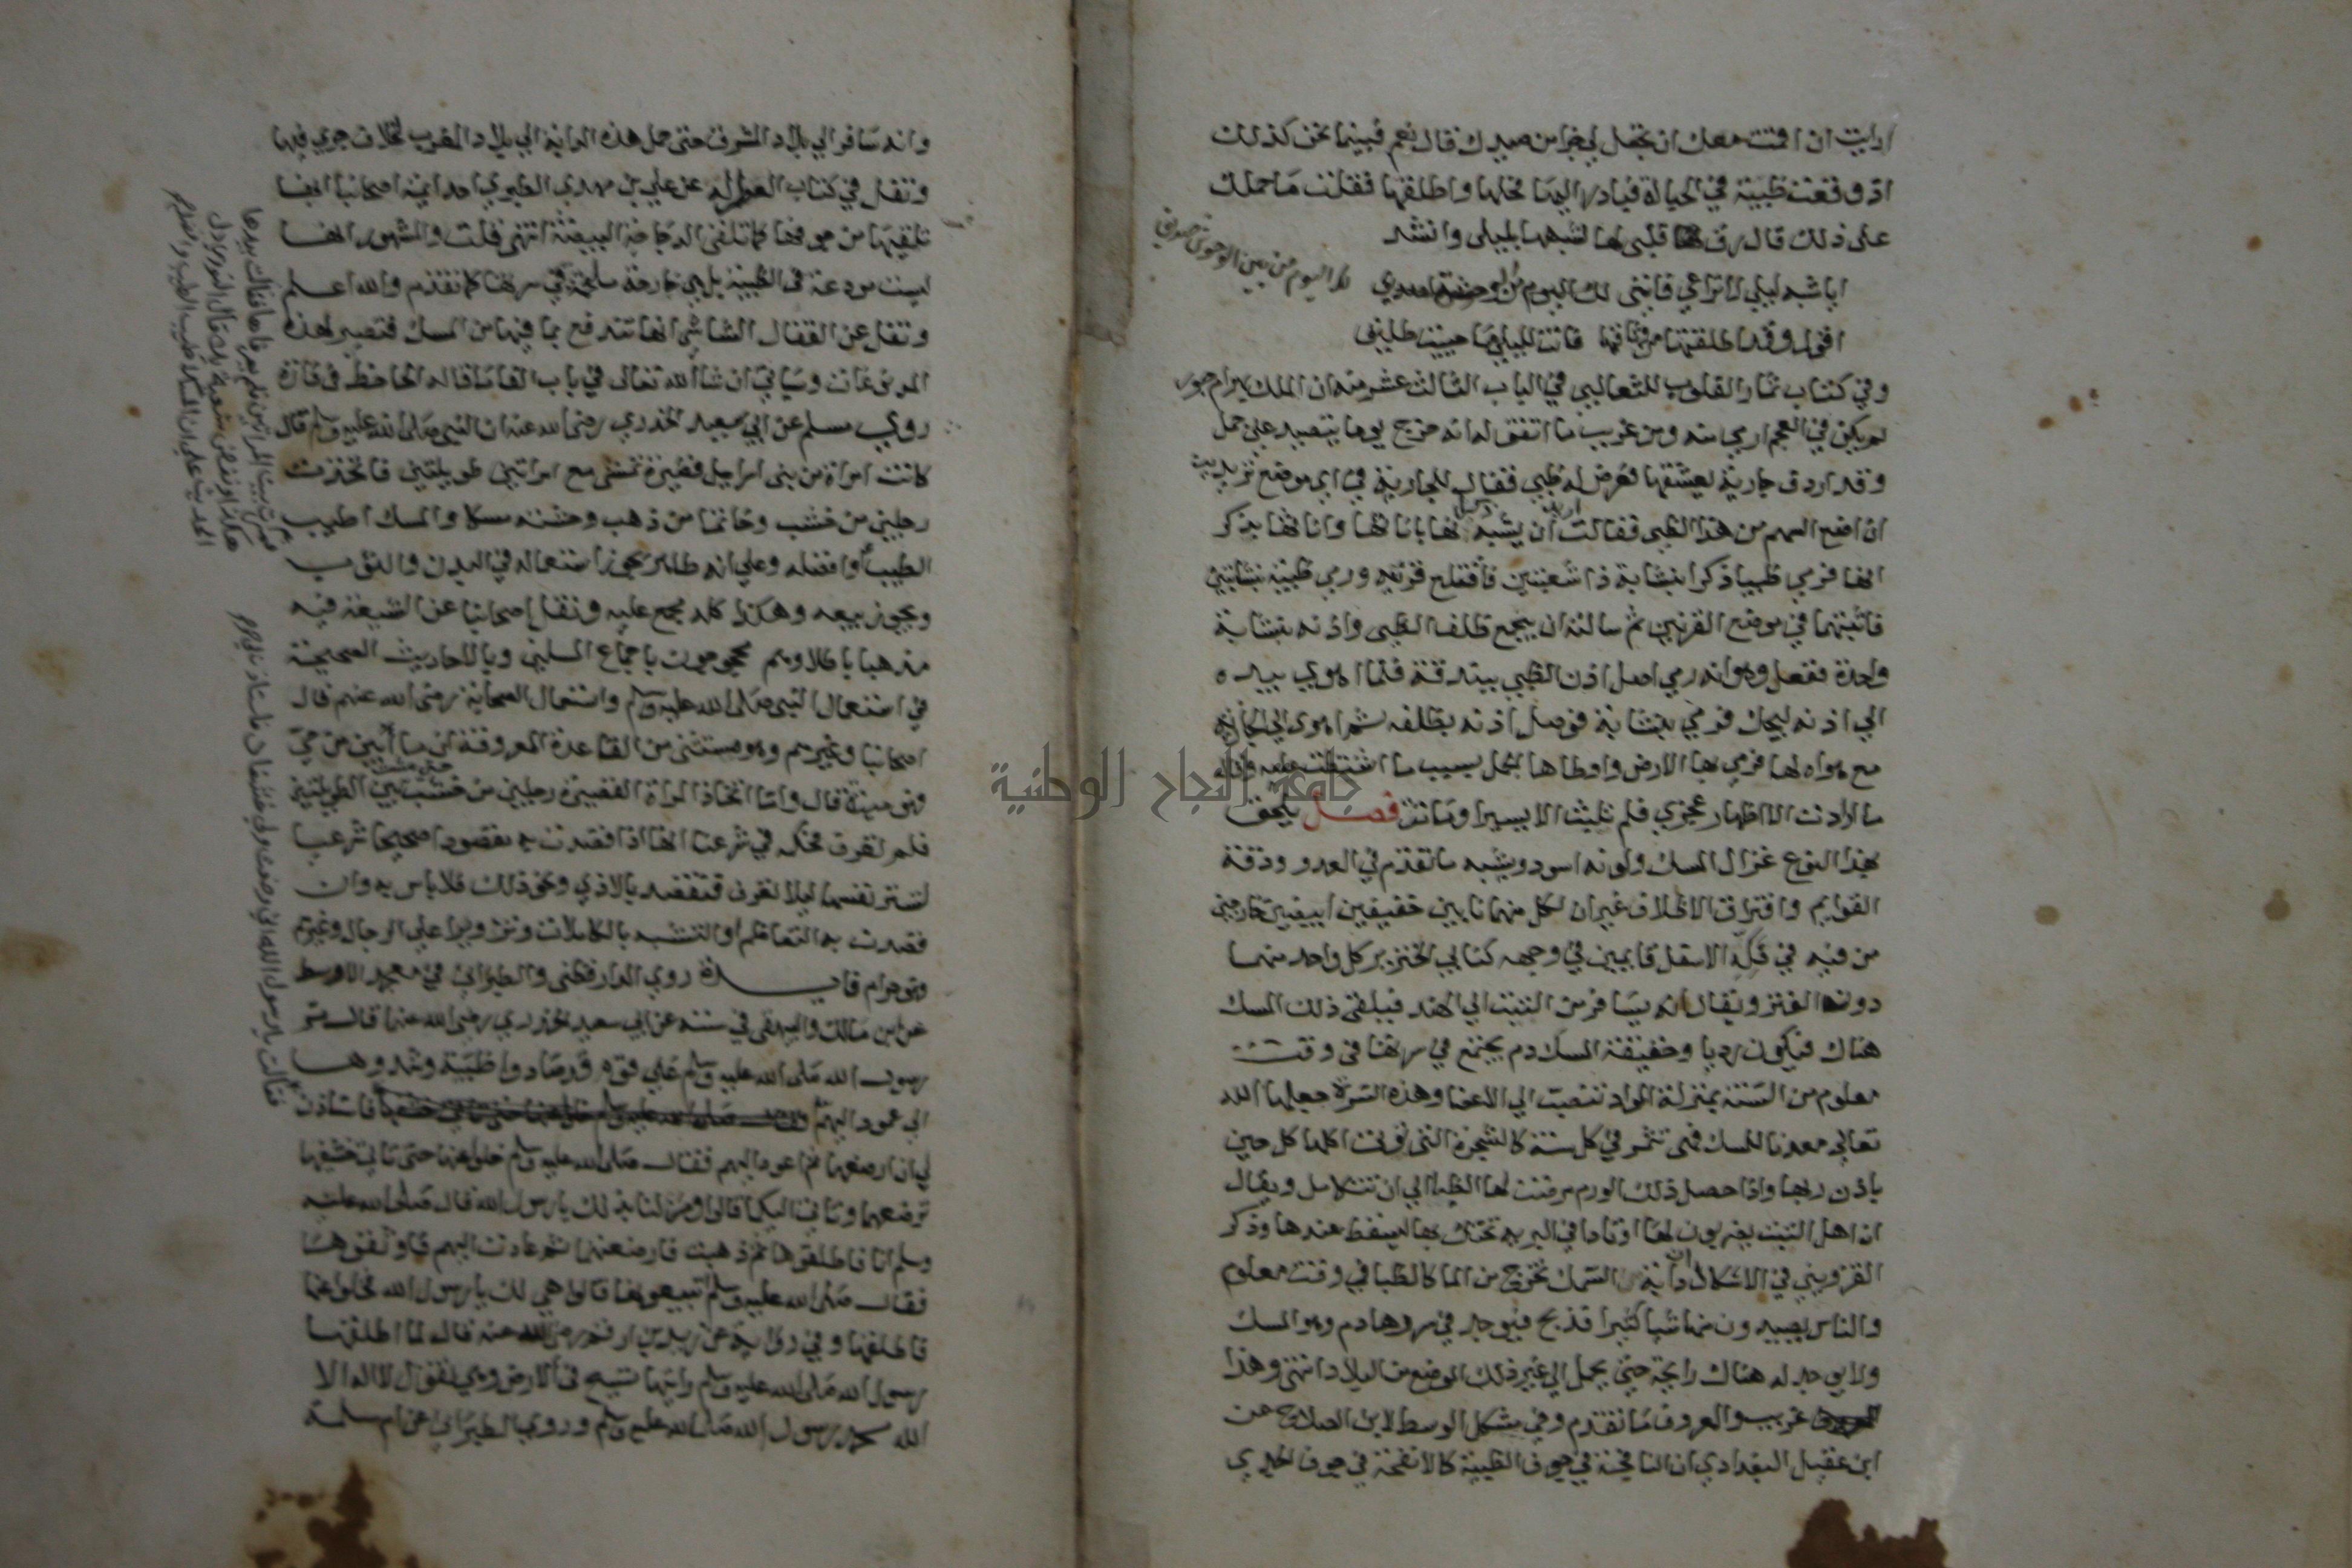 ارايت ان اقمت معك ان تجعل لي جزا من صيدك قال نعم فبينما نحن كذلك
اذ وقعت ظبية في الحبالة فبادر اليها فحلها واطلقها فقلت ما حملك
على ذلك قال رق لها قلبي لشبهها بليلى وانشد
ايا شبه ليلى لا تراعي فانني لك اليوم من
اقول وقد اطلقتها من وثاقها فانت لليلى ما حييت طليق
وفي كتاب ثمار القلوب للثعالبي في الباب الثالث عشر منه ان الملك بهرام جور
لم يكن في العجم ارمى منه ومن غريب ما اتفق له انه خرج يوما يتصيد على جمل
وقد اردف جارية يعشقها فعرض له ظبي فقال للجارية في اي موضع تريدين
ان اضع السهم من هذا الظبي فقالت اريد ان يشبه ذكرانها باناثها واناثها بذكر
انها فرمى ظبيا ذكرا بنشابة ذا شعبتين فاقتلع قرنيه ورمى ظبية بنشابتين
فاثبتهما في موضع القرنين ثم سالته ان يجمع ظلف الظبي واذنه بنشابة
واحدة ففعل وهو انه رمى اصل اذن الظبي ببندقة فلما اهوى بيده
الى اذنه ليحك فرمى بنشابة فوصل اذنه بظلفه ثم اهوى الى الجارية
مع هواه لها فرمى بها الارض واوطاها الجمل بسبب ما اشتطت عليه وقال
ما ارادت الا اظهار عجزي فلم تلبث الا يسيرا وماتت فصل يلحق
بهذا النوع غزال المسك ولونه اسود ويشبه ما تقدم في العدو ودقة
القوايم وافتراق الاظلاف غير ان لكل منهما نابين خفيفين ابيضين خارجين
من فيه في فكه الاسفل قايمين في وجهه كنابي الخنزير كل واحد منهما
دون الفتر ويقال انه يسافر من التبت الى الهند فيلقي ذلك المسك
هناك فيكون رديا وحقيقة المسك دم يجتمع في سرتها في وقت
معلوم من السنة بمنزلة المواد تنصب الى الاعضا وهذه السرة جعلها الله
تعالى معدنا للمسك فهي تثمر في كل سنة كالشجرة التي توتي اكلها كل حين
باذن ربها واذا حصل ذلك الورم مرضت لها الظبا الى ان تتكامل ويقال
ان اهل التبت يضربون لها اوتادا في البرية تحتك بها ليسقط عندها وذكر
القزويني في الاشكال ان دابة السمك تخرج من الما كالظبا في وقت معلوم
والناس يصيدون منها شيا كثيرا فتذبح فيوجد في سررها دم وهو المسك
ولا يوجد له هناك رايحة حتى يحمل الى غير ذلك الموضع من البلاد انتهى وهذا
غريب والمعروف ما تقدم وفي مشكل الوسيط لابن الصلاح عن
ابن عقيل البغدادي ان النافجة في جوف الظبية كالانفحة في جوف الجدي
وانه سافر الى بلاد المشرق حتى حمل هذه الدابة الى بلاد المغرب لخلاف جرى فيها
ونقل في كتاب العطر له عن علي بن مهدي الطبري احد ايمة اصحابنا انها
تلقيها من جوفها كما تلقي الدجاجة البيضة انتهى قلت والمشهور انها
ليست مودعة في الظبية بل هي خارجة ملتحمة في سرتها كما تقدم والله اعلم
ونقل عن القفال الشاشي انها تندبغ بما فيها من المسك فتصير لهذه
المدبوغات وسياتي ان شا الله تعالى في باب الفا ما قاله الجاحظ في فارة
روى مسلم عن ابي سعيد الخدري رضي الله عنه ان النبي صلى الله عليه وسلم قال
كانت امراة من بني اسرايل قصيرة تمشي مع امراتين طويلتين فاتخذت
رجلين من خشب وخاتما من ذهب وحشته مسكا والمسك اطيب
الطيب وافضله وعلى انه طاهر يجوز استعماله في البدن والثوب
ويجوز بيعه وهكذا كله مجمع عليه ونقل اصحابنا عن الشيعة فيه
مذهبا باطلا وهم محجوجون باجماع المسلمين وبالاحاديث الصحيحة
في استعمال النبي صلى الله عليه وسلم واستعمال الصحابة رضي الله عنهم قال
اصحابنا وغيرهم وهو مستثنى من القاعدة المعروفة ان ما ابين من حي
فهو ميتة قال واما اتخاذ المراة القصيرة رجلين من خشب حتى مشت بين الطويلتين
فلم تعرف فحكمه في شرعنا انها اذا قصدت به مقصودا صحيحا شرعيا
لتستر نفسها ليلا تعرف فتقصد بالاذى ونحو ذلك فلا باس به وان
قصدت به التعاظم او التشبه بالكاملات وتزويرا على الرجال وغيرهم
فهو حرام فايدة روى الدارقطني والطبراني في معجمه الاوسط
عن ابن مالك والبيهقي في سننه عن ابي سعيد الخدري رضي الله عنهما قال مر
رسول الله صلى الله عليه وسلم على قوم قد صادوا ظبية وشدوها
الى عمود فاستاذن
لي ان ارضعهما ثم اعود اليهم فقال صلى الله عليه وسلم خلوا عنها حتى تاتي خشفيها
ترضعهما وتاتي اليكم قالوا ومن لنا بذلك يا رسول الله قال صلى الله عليه
وسلم انا فاطلقوها ثم ذهبت فارضعتهما ثم عادت اليهم فاوثقوها
فقال صلى الله عليه وسلم اتبيعونها قالوا هي لك يا رسول الله فخلوا عنها
فاطلقها وفي رواية عن زيد بن ارقم رضي الله عنه قال لما اطلقها
رسول الله صلى الله عليه وسلم رايتها تسبح في الارض وهي تقول لا اله الا
الله محمد رسول الله صلى الله عليه وسلم وروى الطبراني عن ام سلمة
فقالت يا رسول الله اني وضعت ولي خشفان فاستاذن لي
جامعة النجاح الوطنية